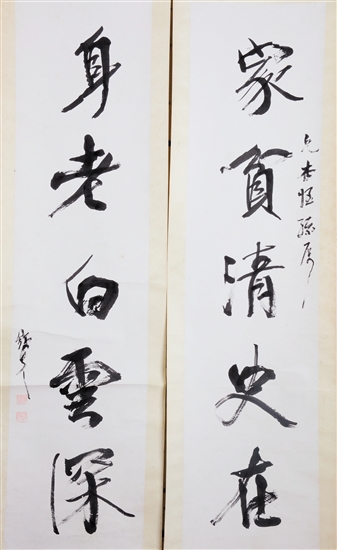 家貧清史在
身老白雲深